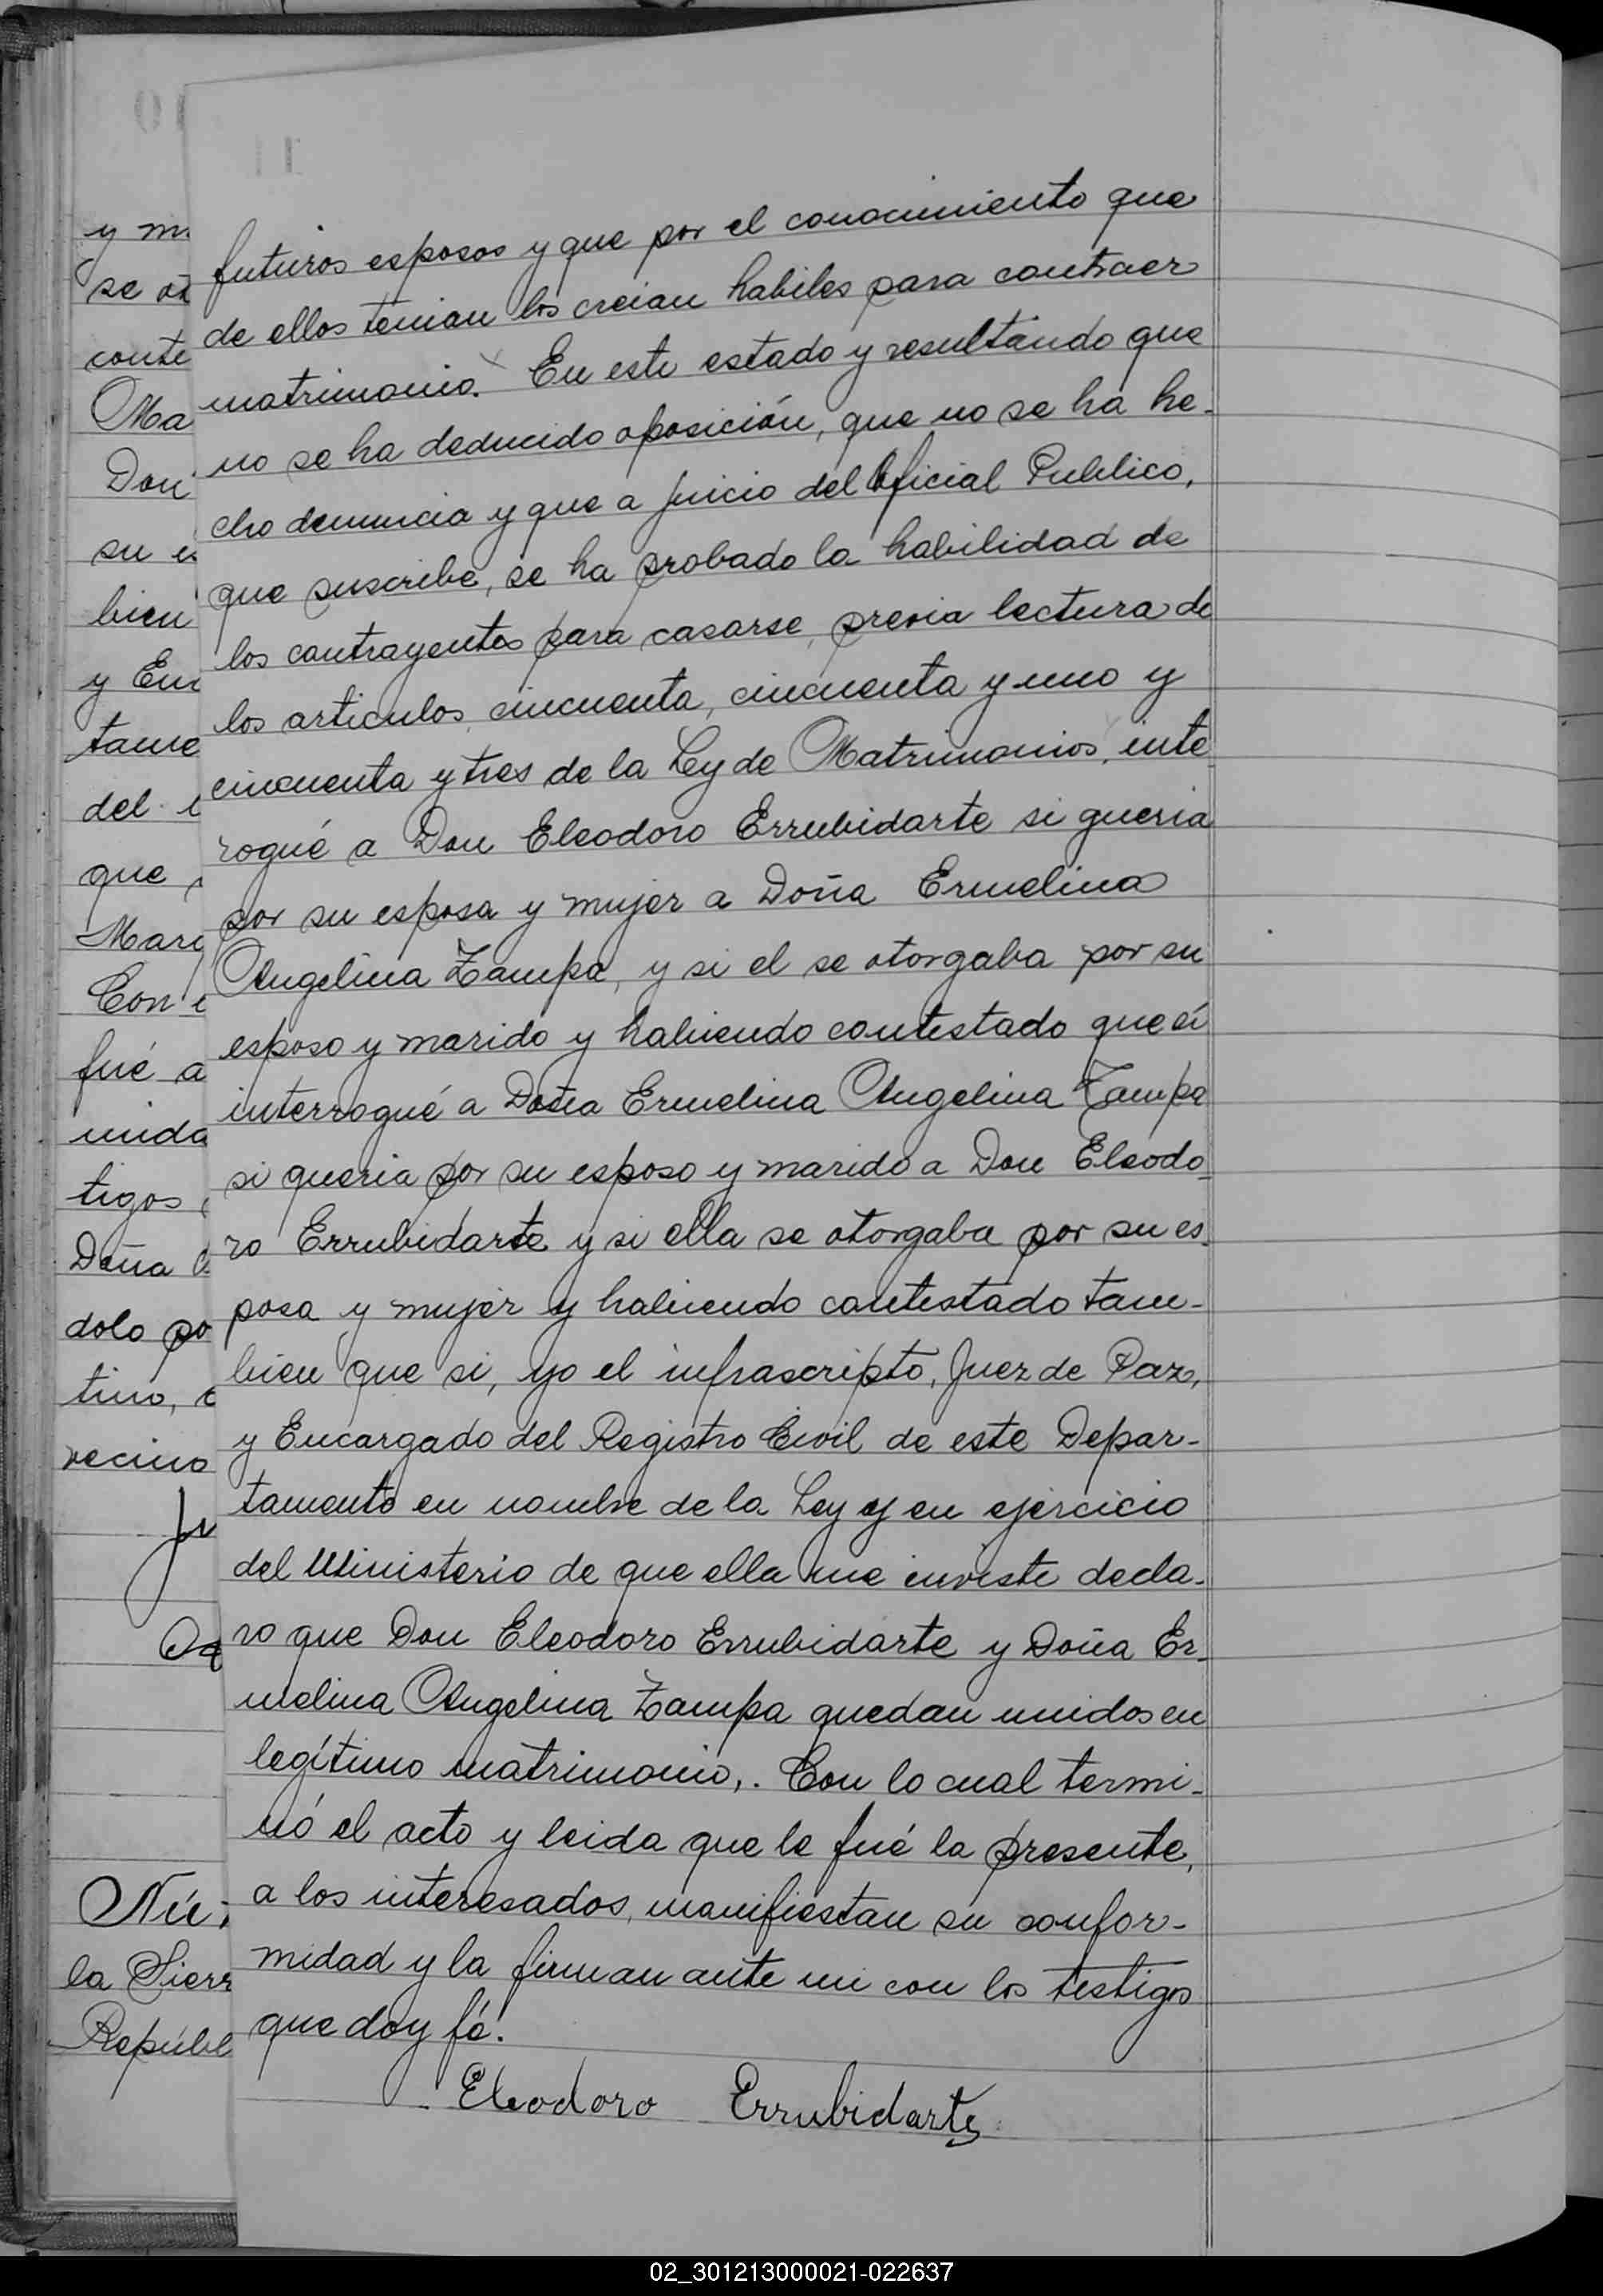 futuros esposos y que por el conocimiento que
de ellos tenian los creian habiles para contraer
matrimonio. En este estado y resultando que
no se ha deducido oposición, que no se ha he-
cho denuncia y que a juicio del Oficial Publico,
que suscribe, se ha probado la habilidad de
los contrayentes para casarse, previa lectura de
los articulos, cincuenta, cincuenta y uno y
cincuenta y tres de la Ley de Matrimonios, inte-
rogué a Don Eleodoro Errubidarte si queria
por su esposa y mujer a Doña Ermelina
Angelina Zampa, y si el se otorgaba por su
esposo y marido y habiendo contestado que si
interrogué a Doña Ermelina Angelina Zampa
si queria por su esposo y marido a Don Eleodo-
ro Errubidarte y si ella se otorgaba por su es-
posa y mujer y habiendo contestado tam-
bien que si, yo el infrascripto, Juez de Paz,
y Encargado del Registro Civil de este Depar-
tamento en nombre de la Ley y en ejercicio
del Ministerio de que ella me inviste decla-
ro que Don Eleodoro Errubidarte y Doña Er-
melina Angelina Zampa quedan unidos en
legítimo matrimonio,. Con lo cual termi-
nó el acto y leida que le fué la presente,
a los interesados, manifiestan su confor-
midad y la firman ante mi con los testigos
que doy fé.
Eleodoro Errubidarte
y m
se
conte
Ma
Don
su es
bien
y En
tame
del
que
Mar
Con
fué a
unida
tigos
Doña
dolo po
tino,
vecino
Ju
Nú
la Sierr
Repúbl
11
10
02_301213000021-022637